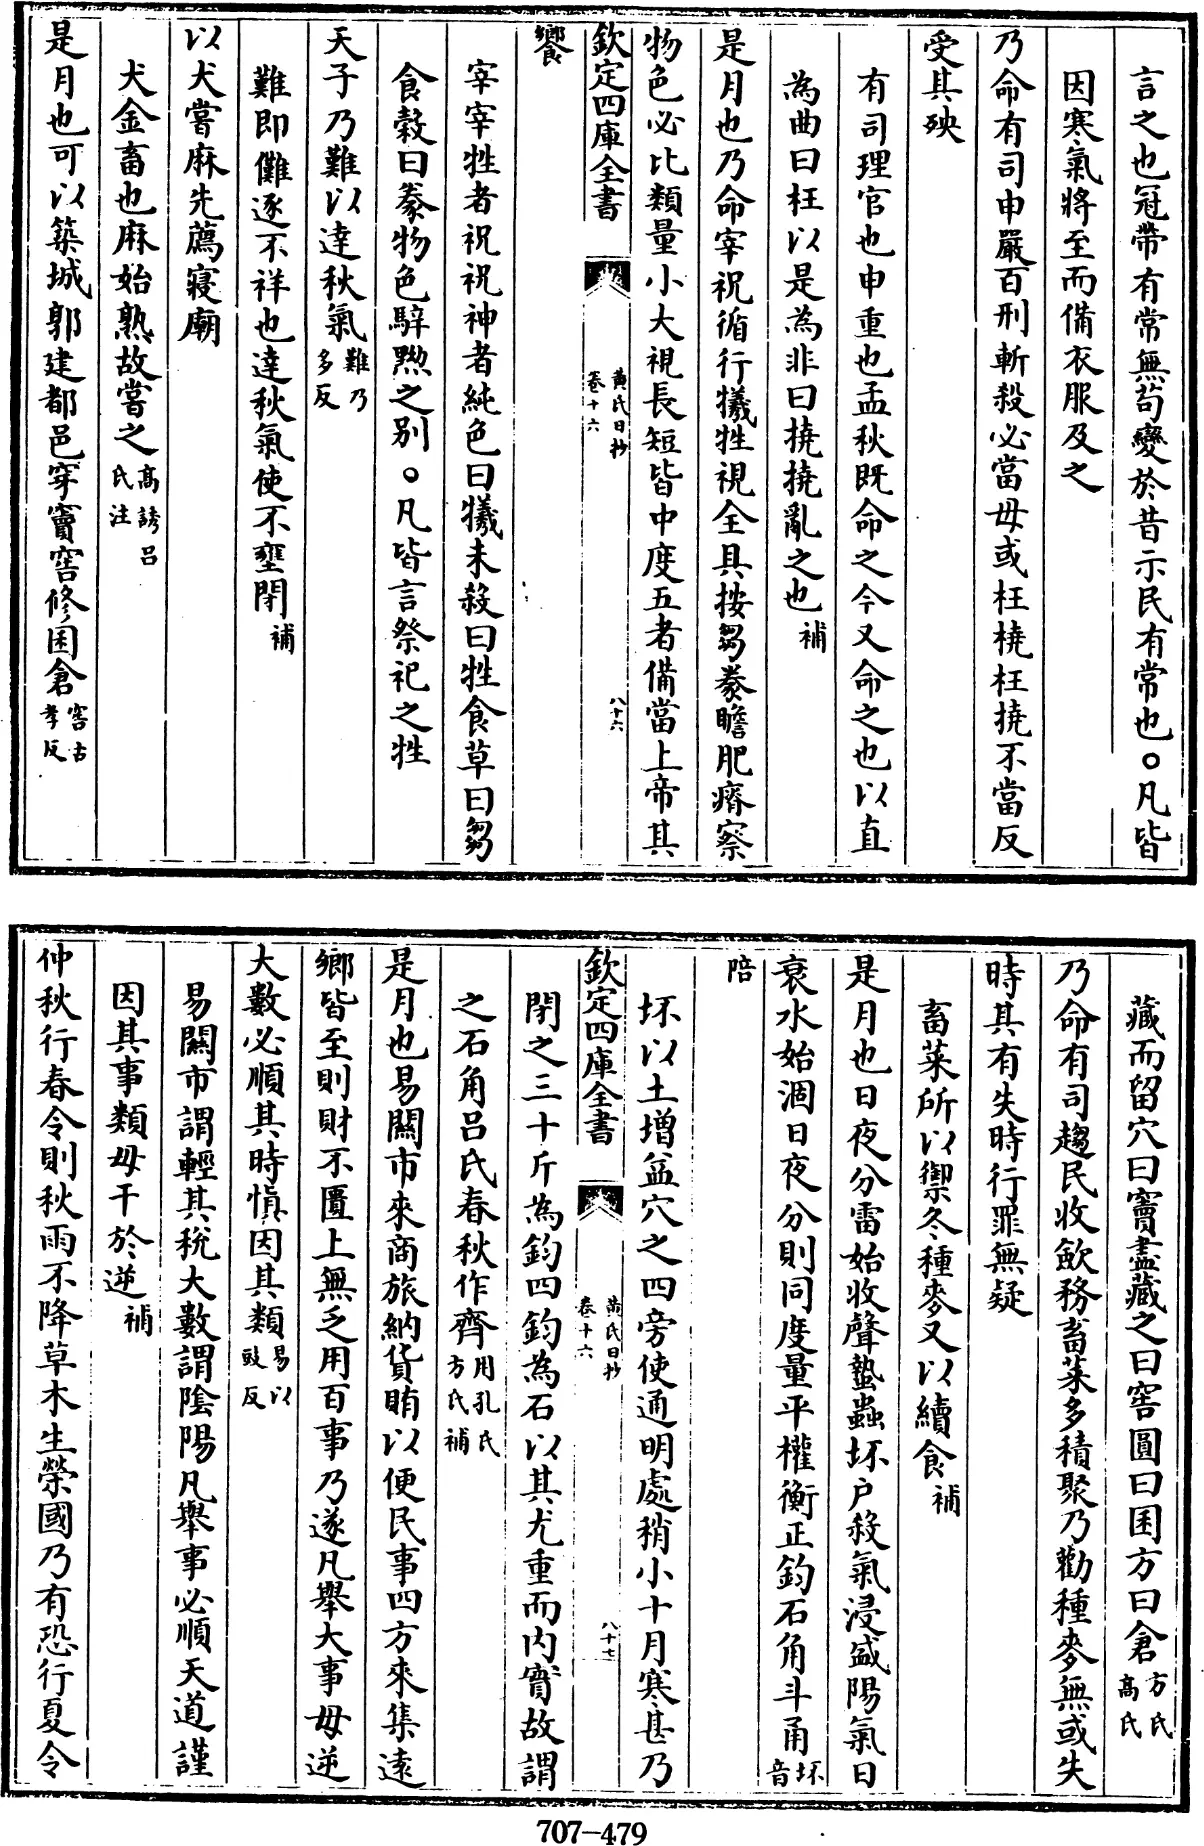 言之也冠帶有常無茍變於昔示民有常也。凡皆
因寒氣將至而備衣服及之
乃命有司申嚴百刑斬殺必當毋或枉橈枉撓不當反
受其殃
有司理官也申重也孟秋既命之今又命之也以直
為曲曰枉以是為非曰撓撓亂之也補
是月也乃命宰祝循行犧牲視全具按芻豢瞻肥瘠察
物色必比類量小大視長短皆中度五者備當上帝其
欽定四庫全書
黃氏日抄
卷十六
八十六
饗
宰宰牲者祝祝神者純色曰犧未殺曰牲食草曰芻
食穀曰豢物色騂黝之别。凡皆言祭祀之牲
天子乃難以達秋氣難乃多反
難即儺逐不祥也達秋氣使不壅閉補
以犬嘗麻先薦寢廟
犬金畜也麻始熟故嘗之高誘呂氏注
是月也可以築城郭建都邑穿竇窖修囷倉窖古孝反
藏而留穴曰竇盡藏之曰窖圓曰囷方曰倉方氏高氏
乃命有司趨民收歛務畜菜多積聚乃勸種麥無或失
時其有失時行罪無疑
畜菜所以禦冬種麥又以續食補
是月也日夜分雷始收聲蟄蟲坏户殺氣浸盛陽氣日
衰水始涸日夜分則同度量平權衡正鈞石角斗甬坏音
陪
坏以土增益穴之四旁使通明處稍小十月寒甚乃
欽定四庫全書
黃氏日抄
卷十六
八十七
閉之三十斤為鈞四鈞為石以其尤重而内實故謂
之石角吕氏春秋作齊用孔氏方氏補
是月也易關市來商旅納貨賄以便民事四方來集遠
鄉皆至則財不匱上無乏用百事乃遂凡舉大事毋逆
大數必順其時慎因其類易以豉反
易關市謂輕其稅大數謂陰陽凡舉事必順天道謹
因其事類毋干於逆補
仲秋行春令則秋雨不降草木生榮國乃有恐行夏令
707-479